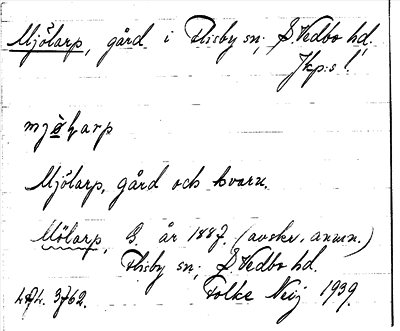 Mjölarp, gård i Flisby sn; S. Vedbo hd.
Jkp:s l!
Mjölarp, gård och kvarn.
Mölarp, G. år 1887. (avskr. anm.)
Flisby sn; S. Vedbo hd.
Folke Neij 1939.